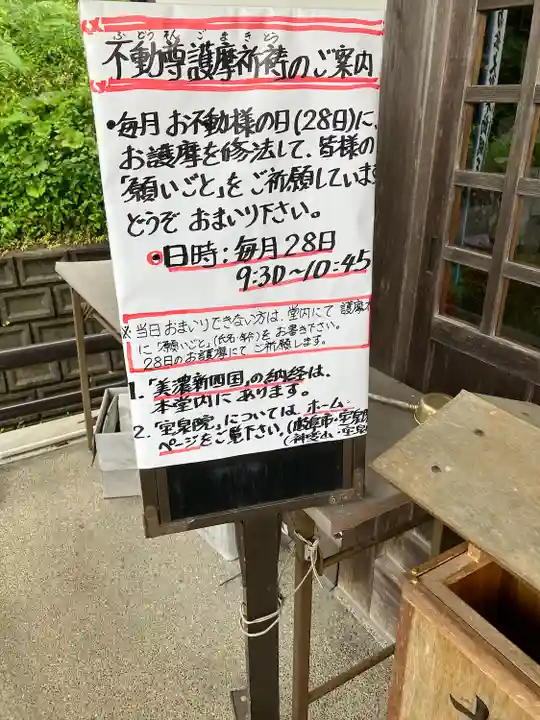 ふどうそんごまきとう
不動尊護摩祈祷のご案内
•毎月お不動様の日(28日)に、
お護摩を修法して、皆様の
「願いごと」をご祈願しています
どうぞ おまいり下さい。
◉日時：毎月28日
9:30〜10:45
※当日おまいりできない方は、堂内にて 護摩木
に「願いごと」(氏名・年令)をお書き下さい。
28日のお護摩にて ご祈願します。
1.「美濃新四国」の納経は、
本堂内にあります。
2.「宝泉院」については、ホーム
ページをご覧下さい。(岐阜市・宝泉